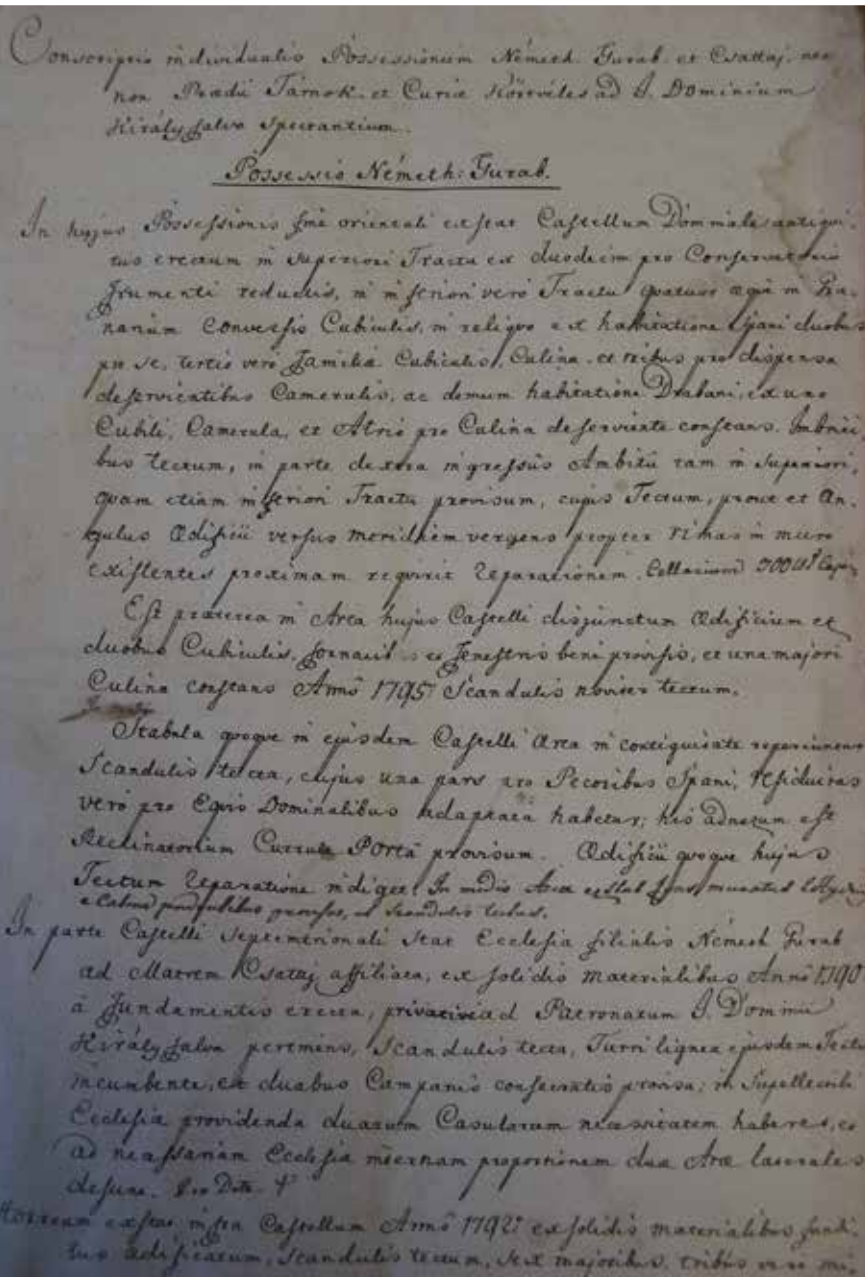 Conscriptio individualis Possessionum Németh Gurab et Csattaj, nec
non Prædii Tárnok et Curiæ Körtvéles ad I. Dominium
Király falva spectantium.
Possessio Németh: Gurab.
In hujus Possessionis fine orientali exstat Castellum Dominale antiqui-
tus erectum in superiori Tractu ex duodecim pro Conservatorio
frumenti reductis, in inferiori vero Tractu quatuor æque in Gra-
narium conversis Cubiculis, in reliquo ex habitatione Spani duobus
pro se, tertio vero familiæ Cubiculis, Culina et tribus pro dispensa
deservientibus Camerulis, ac demum habitatione Drabani, ex uno
Cubili, Camerula, et Atrio pro Culina deserviente constans. Imbrici-
bus tectum, in parte dextera ingressus Ambitu tam in superiori,
quam etiam inferiori Tractu provisum, cujus Tectum, prout et An-
gulus Ædificii versus meridiem vergens propter rimas in muro
existentes proximam requirit reparationem. Cellarium 300
Est præterea in Area hujus Castelli disjunctum Ædificium ex
duobus Cubiculis, fornacib. et fenestris bene provisis, et una majori
Culina constans Anno 1795 Scandulis noviter tectum.
Stabula quoque in ejusdem Castelli Area in contiguitate reperiuntur
Scandulis tecta, cujus una pars pro Pecoribus Spani, residuitas
vero pro Equis Dominalibus adaptata habetur; his adnexum est
Reclinatorium Curruum Porta provisum. Ædificii quoque hujus
Tectum reparatione indiget. In medio Areæ exstat fons muratus
et Scandulis tectus.
In parte Castelli septemtrionali stat Ecclesia filialis Németh Gurab
ad Matrem Csataj affiliata, ex solidis materialibus Anno 1790
à fundamentis erecta, privative ad Patronatum I. Dominii
Király falva pertinens, Scandulis tecta, Turri lignea ejusdem Tecto
incumbente, et duabus Campanis consecratis provisa; in Supellectili
Ecclesiæ providenda duarum Casularum necessitatem haberet, et
ad necessariam Ecclesiæ internam proportionem duæ Aræ laterales
desunt.
Horreum exstat infra Castellum Anno 1792 ex solidis materialibus fundi-
tus ædificatum, scandulis tectum, sex majoribus, tribus vero mi-